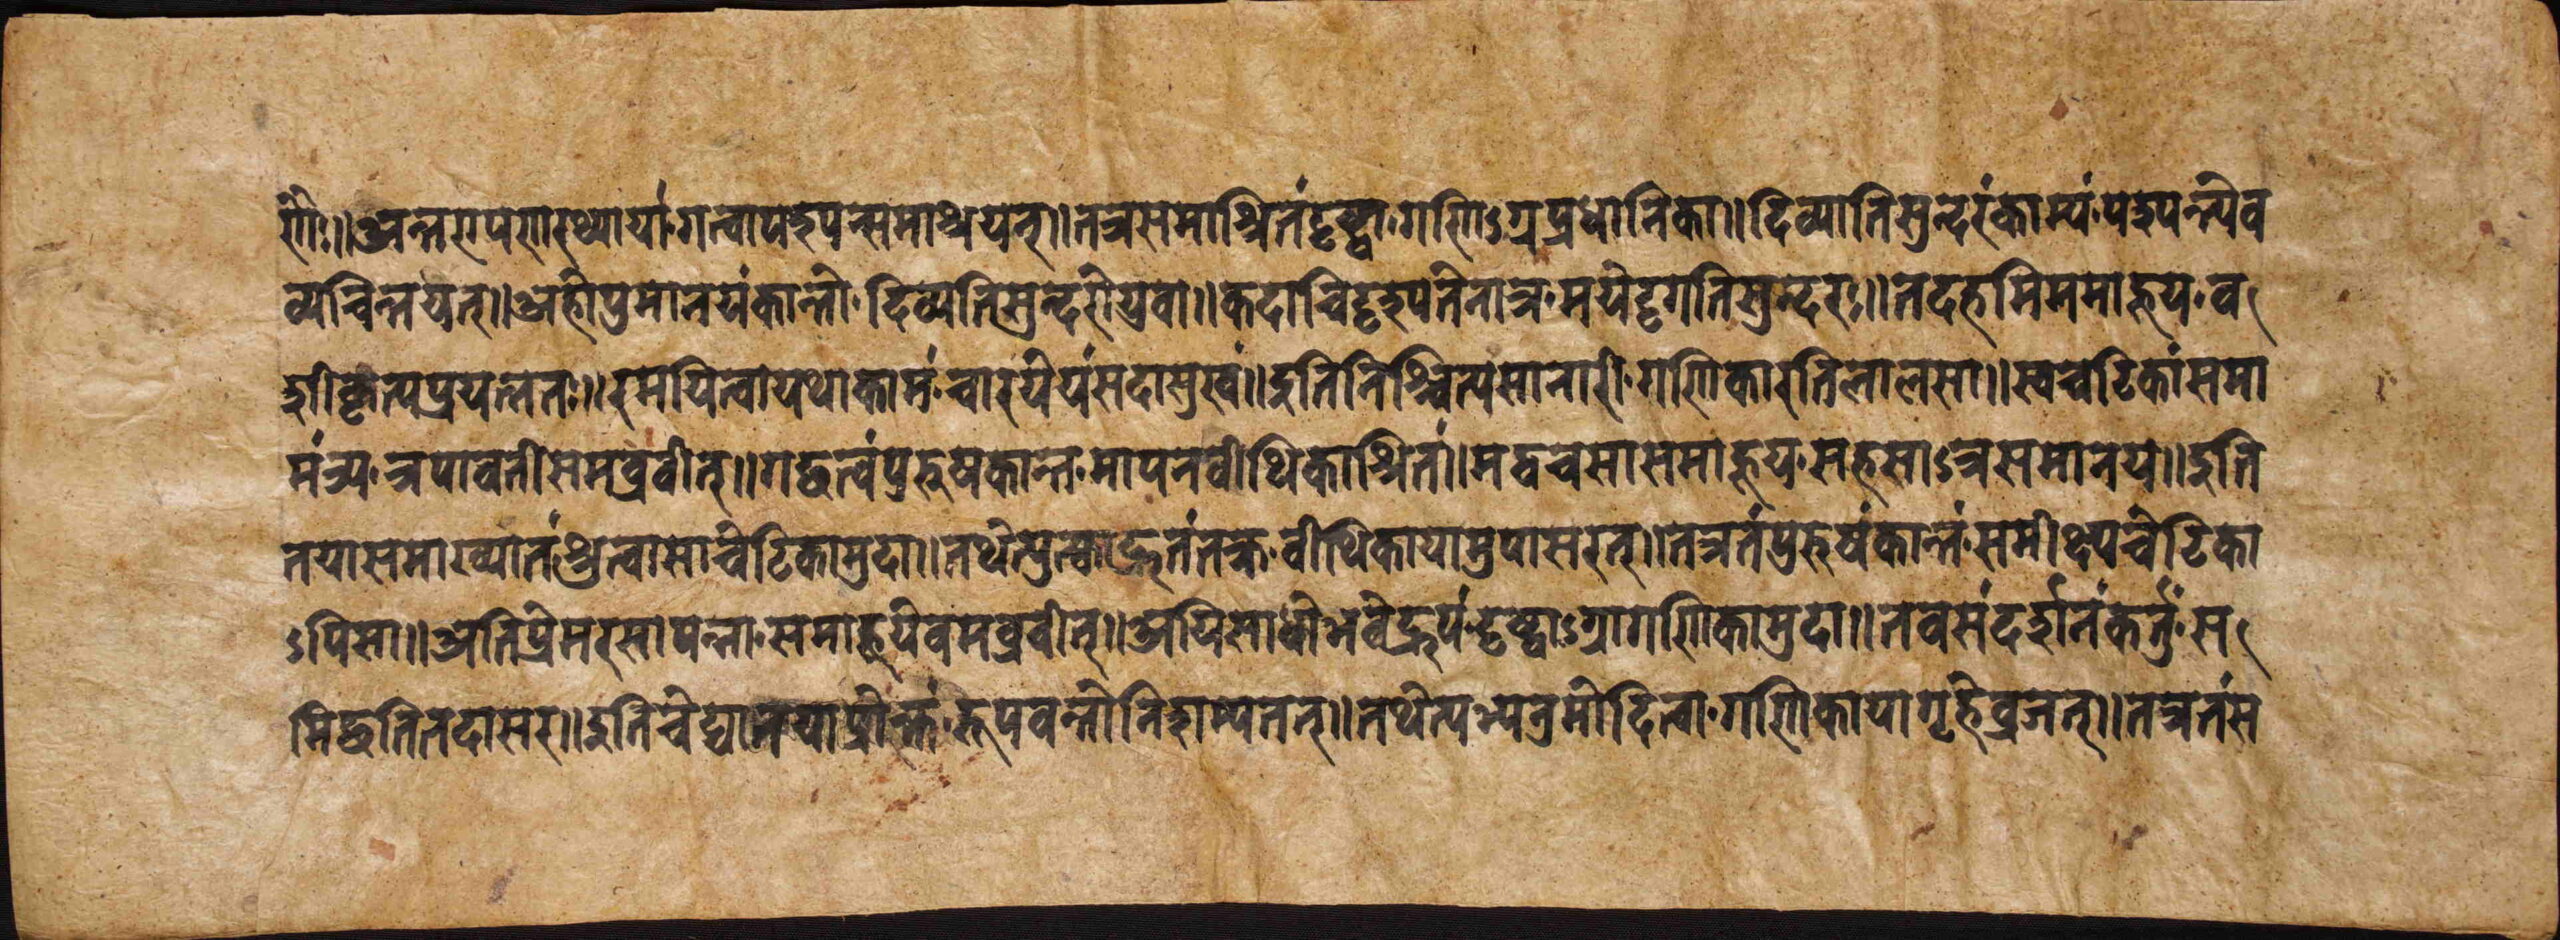 णैः॥अन्तरापणरथ्यायां गत्वापश्यन्समाश्रयत्॥तत्रसमाश्रितंदृष्ट्वा गणिऽग्रप्रधानिका॥दिव्यातिसुन्दरंकाम्यं पश्यन्त्येव
व्यचिन्तयत्॥अहोपुमानयंकान्तो दिव्यतिसुन्दरोयुवा॥कदाचिदृश्यतेनात्र मयेदृगतिसुन्दरः॥तदहमिममाहूय व
शीकृत्यप्रयत्नतः॥रमयित्वायथाकामं चारयेयंसदासुखं॥इतिनिश्चित्यसानारी गणिकारतिलालसा॥स्वचेटिकांसमा
मंत्र्य त्रपावतीसमब्रवीत्॥गच्छत्वंपुरुषकान्त मापनवीथिकाश्रितं॥मद्वचसासमाहूय सहसाऽत्रसमानय॥इति
तयासमाख्यातंश्रुत्वासाचेटिकामुदा॥तथेत्युत्क्वाद्रुतंतत्र वीथिकायामुपासरत्॥तत्रतंपुरुषंकान्तं समीक्ष्यचेटिका
ऽपिसा॥अतिप्रेमरसापन्ना समाहूयैवमब्रवीत्॥अयिसाधोभवेद्रूपं दृष्ट्वाऽग्रागणिकामुदा॥तवसंदर्शनंकर्तुं स
मिच्छतितदासर॥इतिचेद्वाचयाप्रोक्तं रूपवन्तोनिशम्यतत्॥तथेत्यभ्यनुमोदित्वा गणिकायागृहेव्रजत्॥तत्रतंस